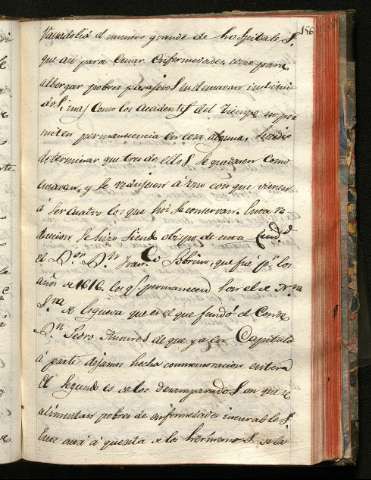 186
Valladolid el numero grande de hospitales
que asi para curar enfermedades como para
albergar pobres pasajeros
mas como los accidentes del tiempo no per
miten permanencia en cosa alguna,
determinar que tres de ellos se quitasen como
quitaron, y se redujesen à uno con que vienen
à ser cuatro los que hoi se conservan. Esta re
ducion se hizo siendo obispo de esta ciudd
el Dor. Dn. Franco Sobrino, que fue pr. los
años de 1616. los qe. permanecen son el de Nra.
Sra. de Esgueva que es el que fundó el Conde
Dn. Pedro Ansures de que ya en Capitulo
à parte dejamos hecha conmemoracion entera
El segundo es de los desamparados en que se
alimentan pobres de enfermedades incurables
Este está à quenta de los hermanos de la